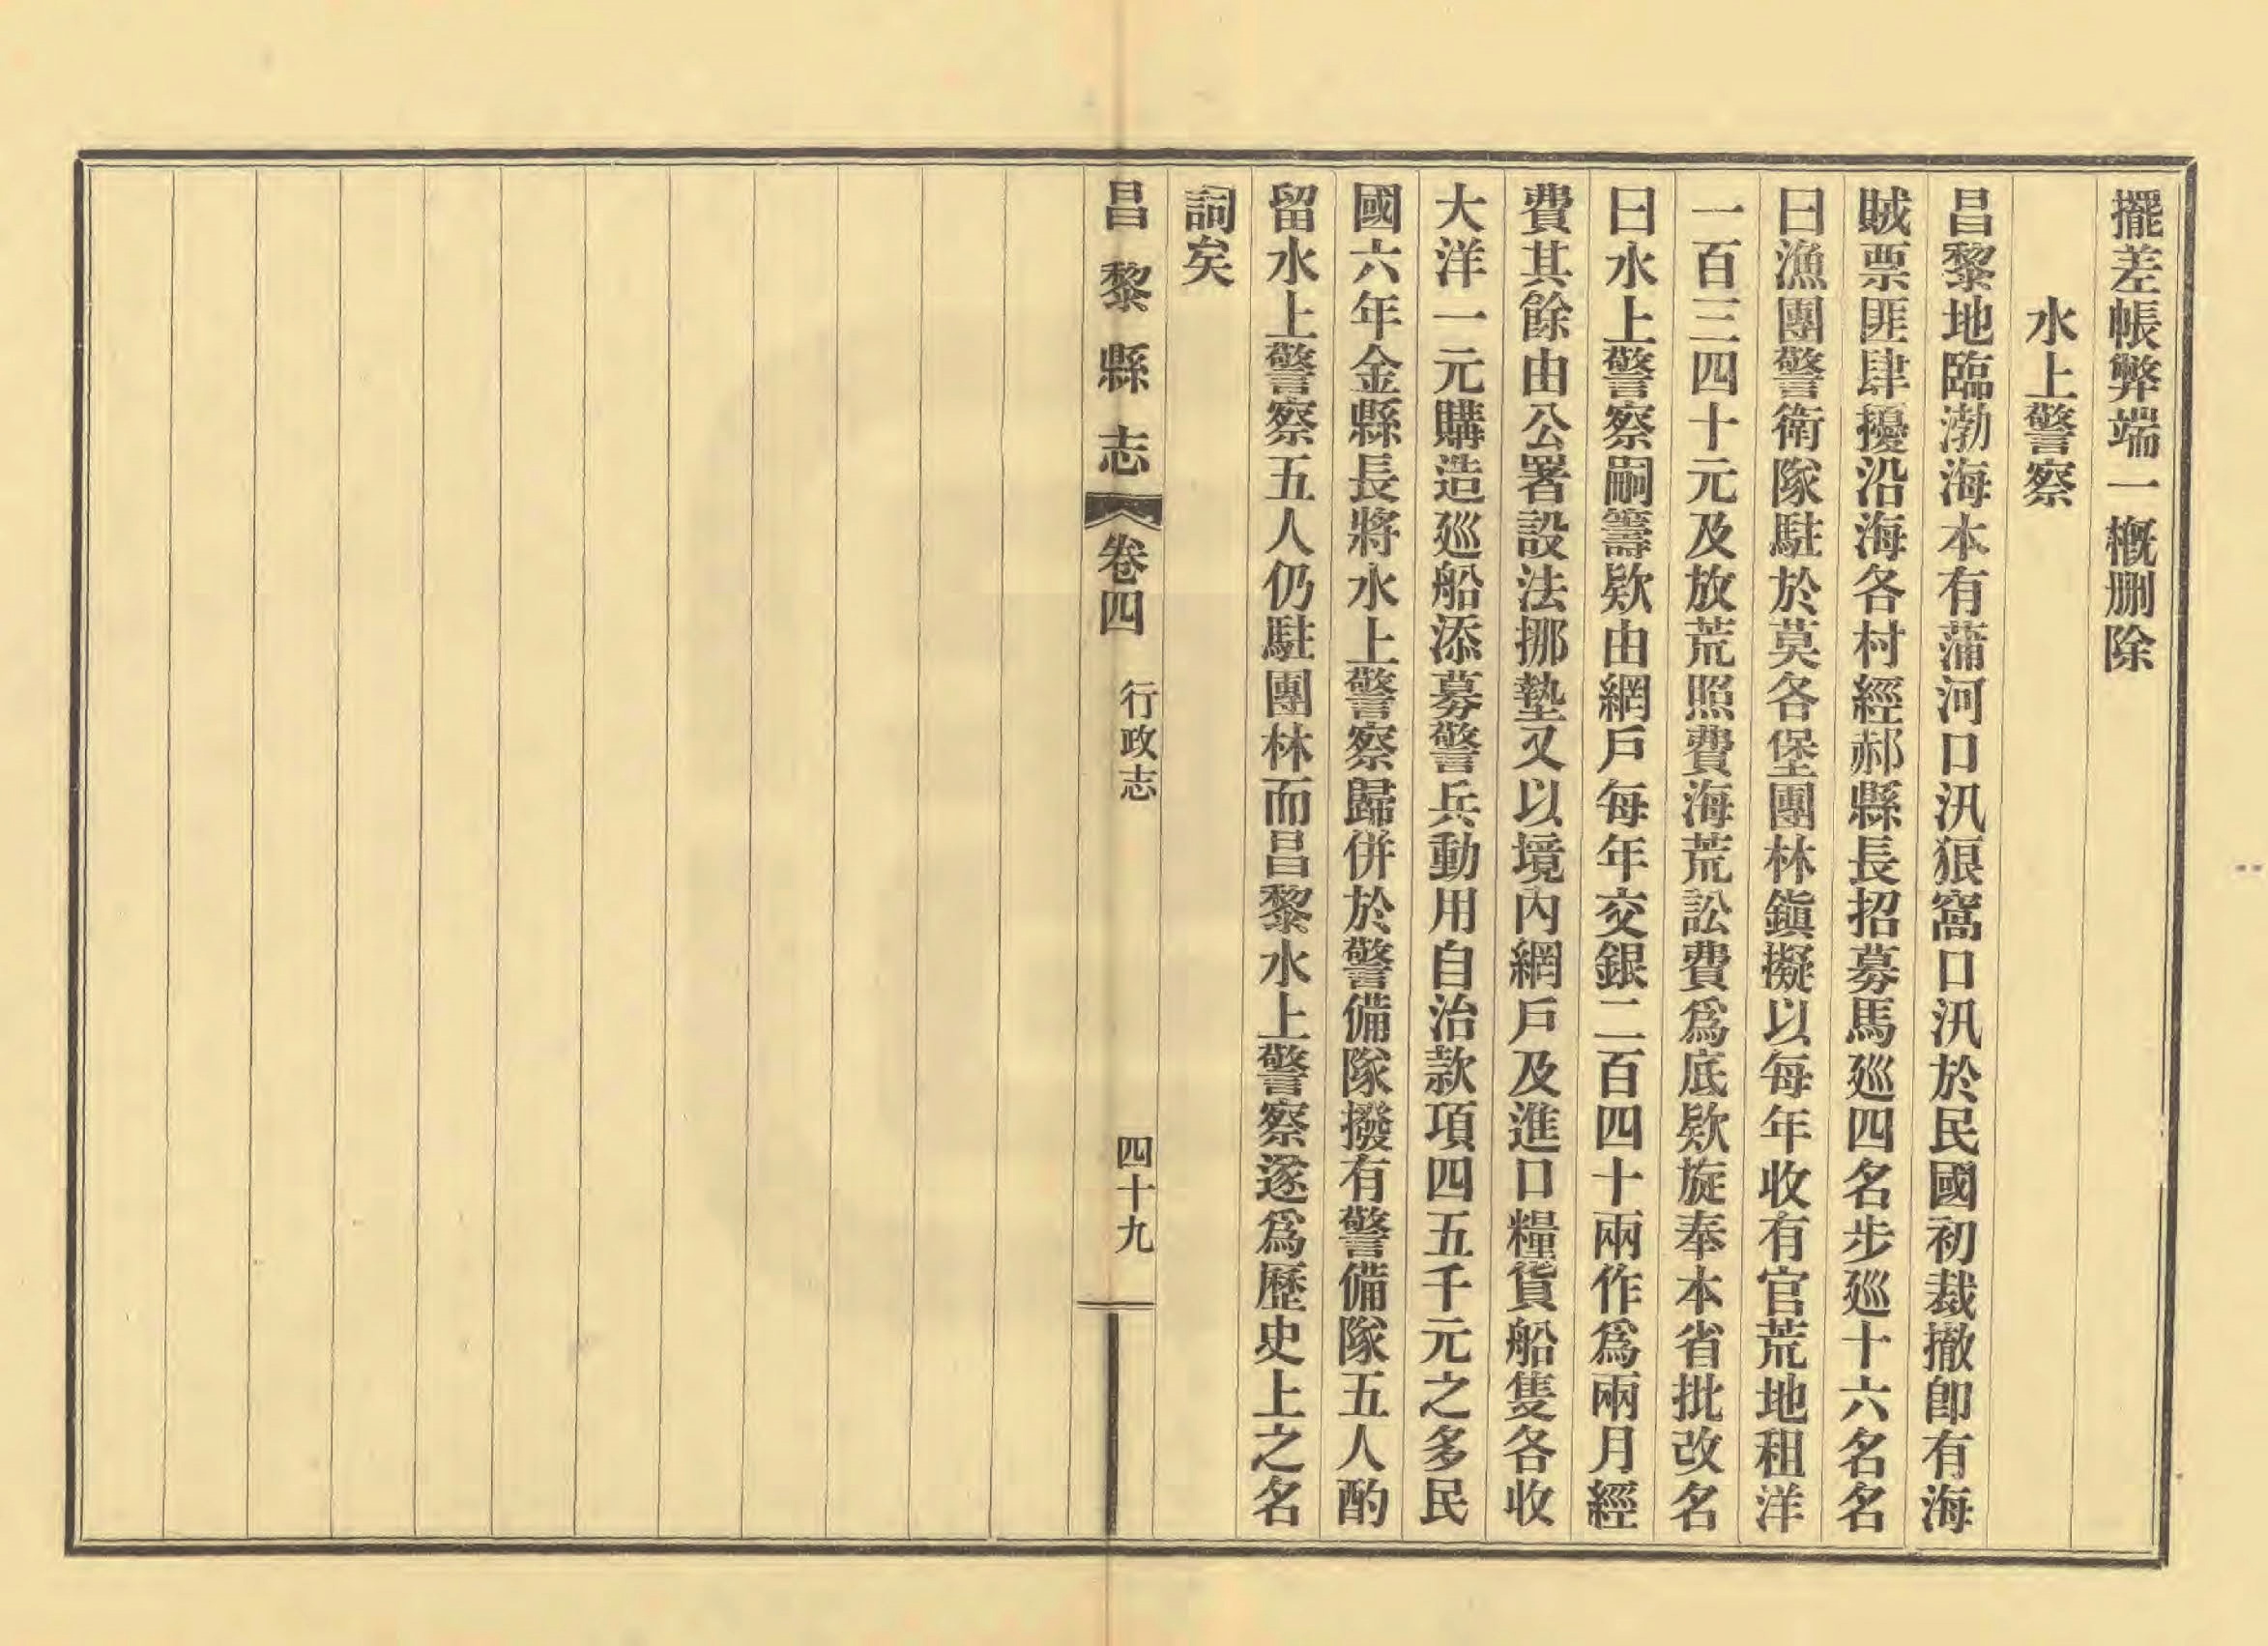 擺差帳弊端一概删除
水上警察
昌黎地臨渤海本有蒲河口汛狼窩口汛於民國初裁撤卽有海
賊票匪肆擾沿海各村經郝縣長招募馬廵四名步廵十六名名
曰漁團警衛隊駐於莫各堡團林鎭擬以每年收有官荒地租洋
一百三四十元及放荒照費海荒訟費爲底欵旋奉本省批改名
曰水上警察嗣籌欵由網戶每年交銀二百四十兩作爲兩月經
費其餘由公署設法挪墊又以境內網戶及進口糧貨船隻各收
大洋一元購造廵船添募警兵動用自治款項四五千元之多民
國六年金縣長將水上警察歸併於警備隊撥有警備隊五人酌
留水上警察五人仍駐團林而昌黎水上警察遂爲歷史上之名
詞矣
昌黎縣志 卷四 行政志 四十九